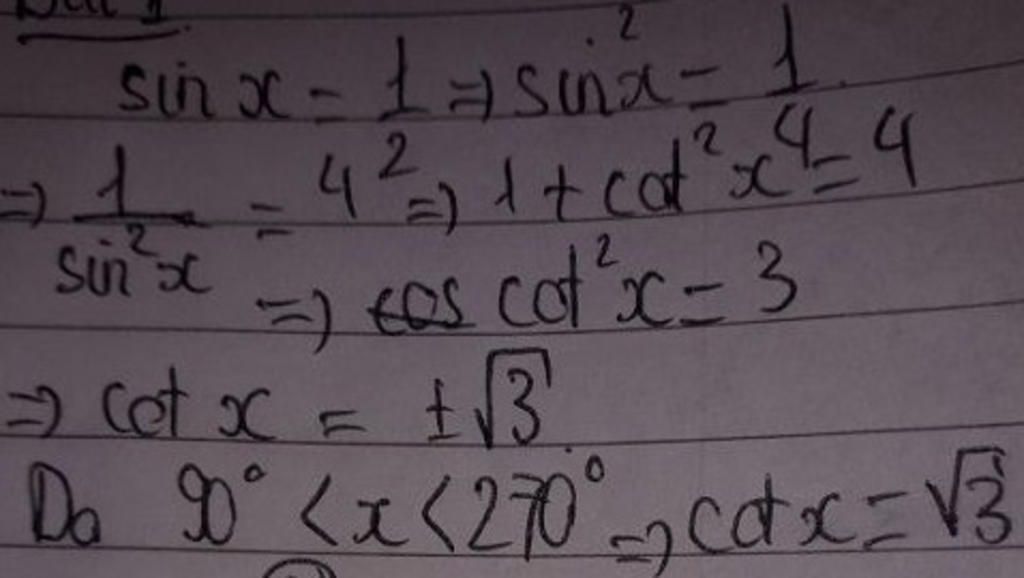 Bài 1
sin x = 1/2 ⇒ sin²x = 1/4
⇒ 1/sin²x = 4 ⇒ 1 + cot²x = 4
⇒ cos cot²x = 3
⇒ cot x = ±√3
Do 90° < x < 270° ⇒ cot x = √3